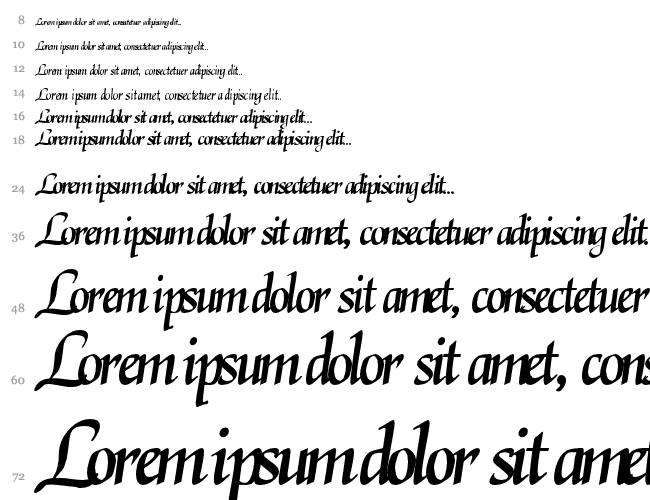 8 Lorem ipsum dolor sit amet, consectetuer adipiscing elit...
10 Lorem ipsum dolor sit amet, consectetuer adipiscing elit...
12 Lorem ipsum dolor sit amet, consectetuer adipiscing elit...
14 Lorem ipsum dolor sit amet, consectetuer adipiscing elit..
16 Lorem ipsum dolor sit amet, consectetuer adipiscing elit...
18 Lorem ipsum dolor sit amet, consectetuer adipiscing elit...
24 Lorem ipsum dolor sit amet, consectetuer adipiscing elit...
36 Lorem ipsum dolor sit amet, consectetuer adipiscing elit.
48 Lorem ipsum dolor sit amet, consectetuer
60 Lorem ipsum dolor sit amet, cons
72 Lorem ipsum dolor sit amet